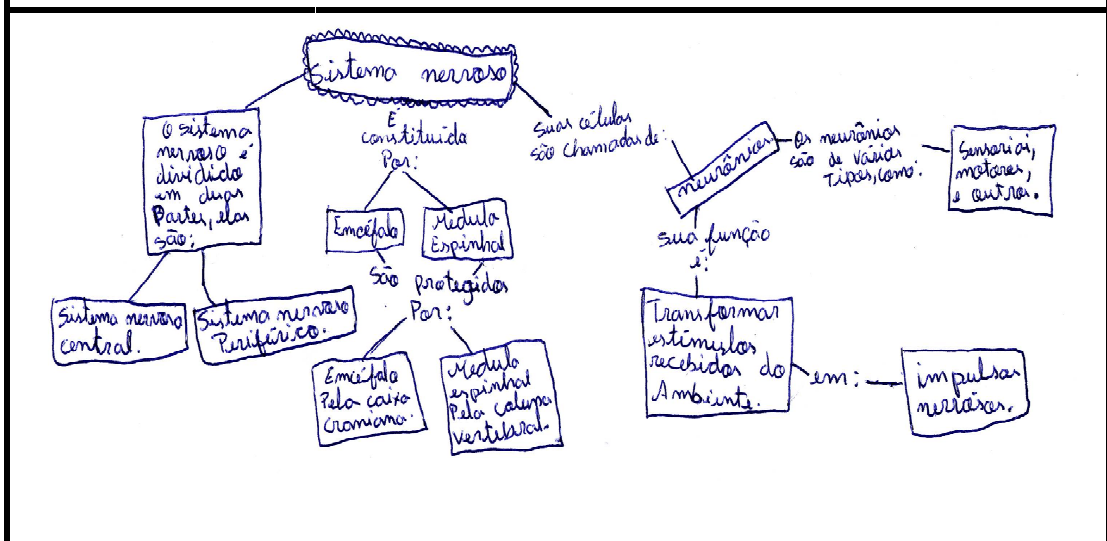 Sistema nervoso
O sistema
nervoso é
dividido
em duas
Partes, elas
são:
Sistema nervoso
central.
Sistema nervoso
Periférico.
É
constituída
Por:
Emcéfalo
Medula
Espinhal
São protegidos
Por:
Emcéfalo
Pela caixa
craniana.
Medula
espinhal
Pela coluna
vertibural.
Suas células
são chamadas de:
neurônios.
Os neurônios
são de vários
Tipos, como:
Sensoriai,
motores,
e outros.
sua função
é:
Transformar
estímulos
recebidos do
Ambiente.
em:
impulsos
nervosos.